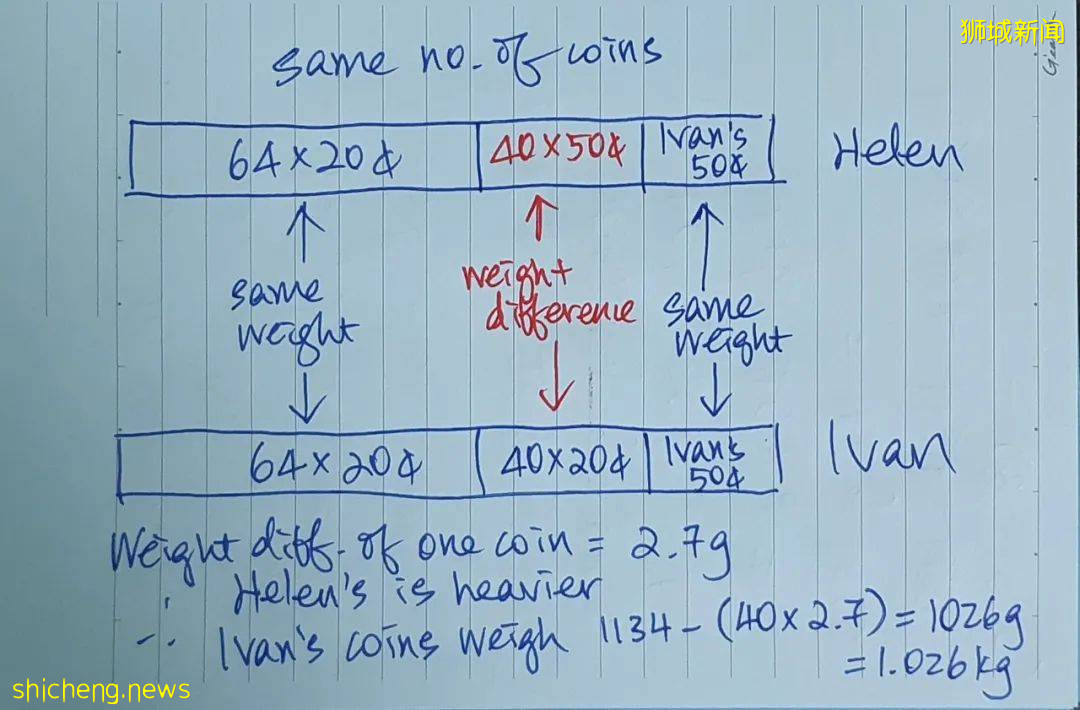 狮城新闻
same no. of coins
64×20¢ 40×50¢ Ivan's 50¢ Helen
same weight
weight difference
same weight
64×20¢ 40×20¢ Ivan's 50¢ Ivan
Weight diff. of one coin = 2.7g
Helen's is heavier
Ivan's coins weigh 1134 - (40×2.7) = 1026g
= 1.026kg
shicheng.news